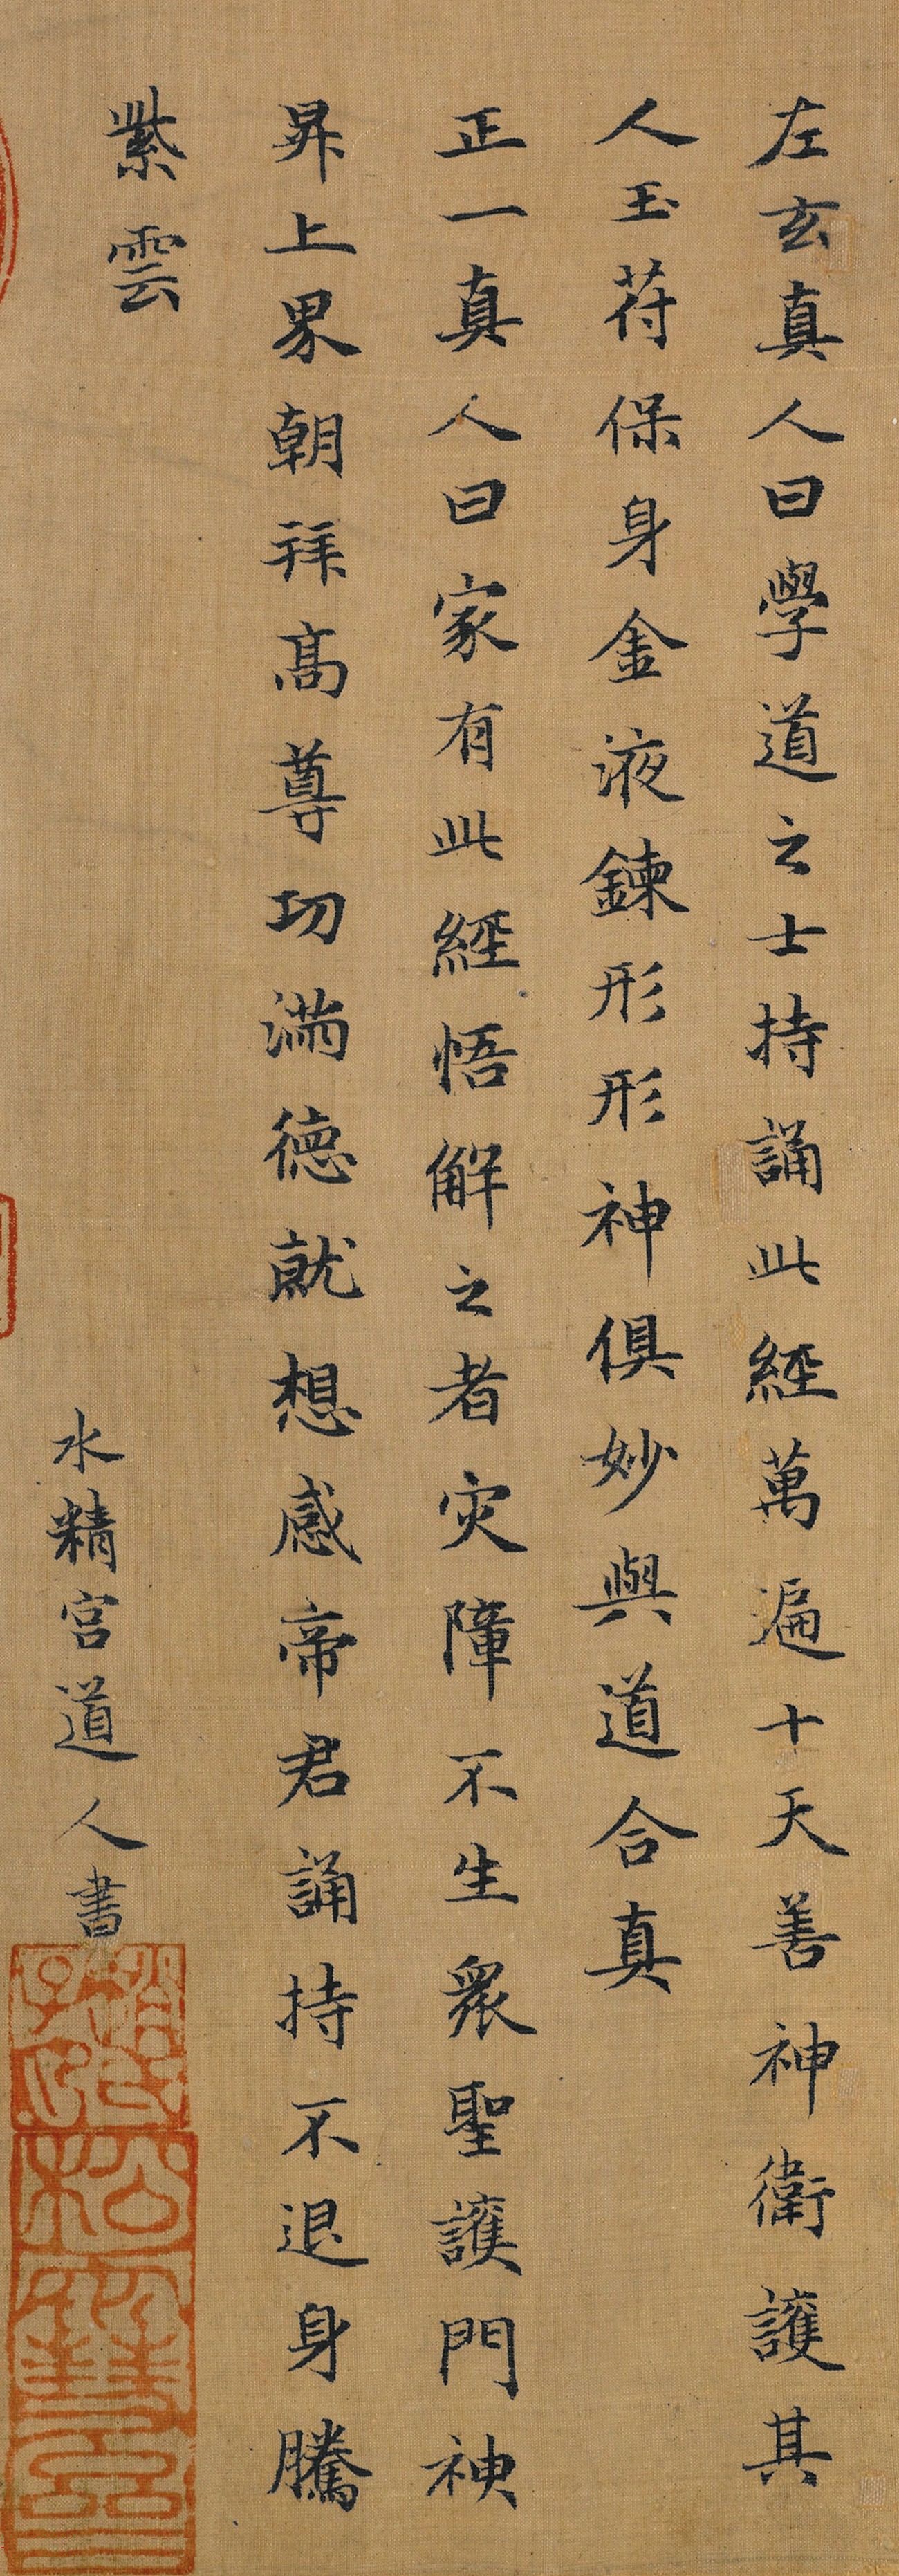 左玄真人曰學道之士持誦此經萬遍十天善神衛護其
人玉苻保身金液鍊形形神俱妙與道合真
正一真人曰家有此經悟解之者灾障不生眾聖護門神
昇上界朝拜高尊功滿德就想感帝君誦持不退身騰
紫雲
水精宮道人書
趙氏子印
松雪齋